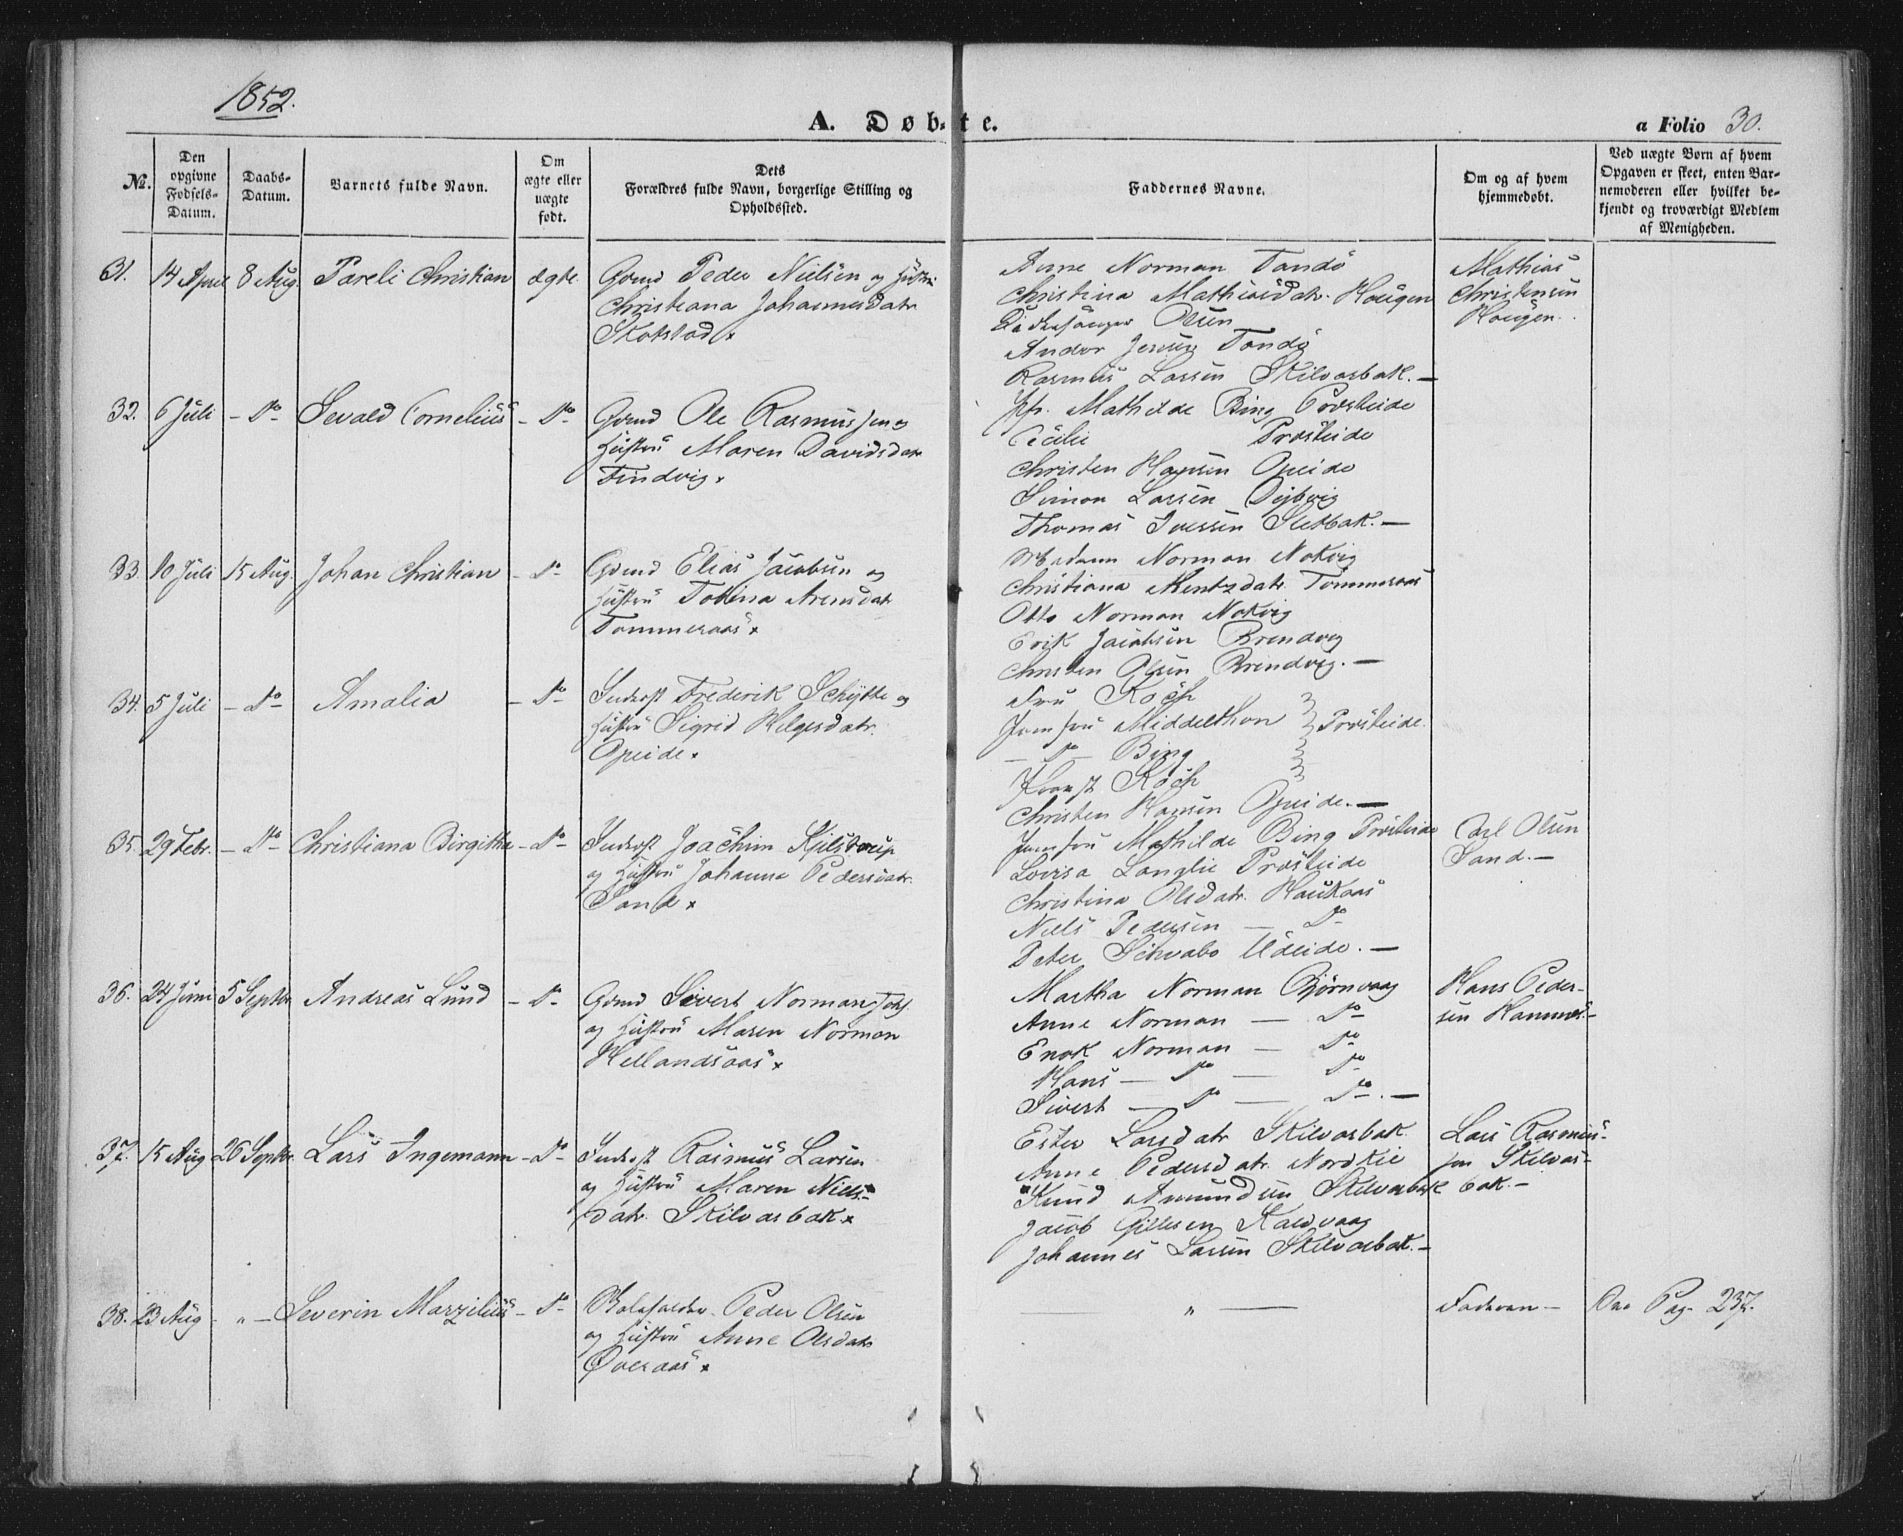 1852.
A. Døbte.
a Folio 30.
No.
Den opgivne Fødsels-Datum.
Daabs-Datum.
Barnets fulde Navn.
Om ægte eller uægte født.
Dets Forældres fulde Navn, borgerlige Stilling og Opholdssted.
Faddernes Navne.
Om og af hvem hjemmedøbt.
Ved uægte Børn af hvem Opgaven er skeet, enten Barnemoderen eller hvilket bekjendt og troværdigt Medlem af Menigheden.
31. 14 April 8 Aug. Pareli Christian ægte.
Gbmd Peder Nielsen og Hustru
Christiana Johannesdatr
Skotstad
Anne Norman Tandö
Christina Mathiasdatr. Haugen
Kirkesanger Olsen
Andor Jensen Tandö
Rasmus Larsen Skilvasbak. —
Mathias
Christensen
Haugen.
32. 6 Juli - Do - Sevald Cornelius - Do
Gbmd Ole Rasmussen og
Hustru Maren Davidsdatr
Findvig.
Jfr. Mathilde Bing Presteide
Cecilie Presteide
Christen Hansen Opeide
Simon Larsen Dybvig
Thomas Iversen Sletbak. —
33. 10 Juli 15 Aug. Johan Christian - Do -
Gbmd Elias Jacobsen og
Hustru Tobina Arensdatr
Tømmeraas
Madam Norman Nakvig
Christiana Mentzdatr. Tømmeraas
Otto Norman Nakvig
Erik Jacobsen Brendvig
Christen Olsen Brendvig. —
34. 5 Juli - Do - Amalia - Do -
Inderst Frederik Schytte og
Hustru Sigrid Helgesdatr.
Opeide.
Fru Koch
Jomfru Middelthon Presteide.
- Do - Bing
Provst Koch
Christen Hansen Opeide. —
35. 29 Febr. - Do - Christiana Birgitha - Do -
Inderst Joachim Kilstrup
og Hustru Johanna Pedersdatr.
Sand
Jomfru Mathilde Bing Presteide
Lovisa Langlie Presteide
Christina Olsdatr. Haukaas
Niels Pedersen — Do
Peter Schvabo Udeide. —
Olsen
Sand. —
36. 24 Juni 5 Septbr Andreas Lund - Do -
Gbmd Sivert Norman
og Hustru Maren Norman
Hellandsaas
Martha Norman Björnvaag
Anne Norman — Do
Enok Norman — Do
Hans — Do — Do
Sivert — Do — Do. —
Hans Peder-
sen Hamnes. -
37. 15 Aug 26 Septbr. Lars Ingemann - Do -
Inderst Rasmus Larsen
og Hustru Maren Niels-
datr. Skilvasbak
Ester Larsdatr Skilvasbak
Anne Pedersdatr. Nordkil
Knud Amundsen Skilvasbak
Jacob Gillesen Kaldvaag
Johannes Larsen Skilvasbak. —
Lars Rasmus-
sen Skilvas-
bak. —
38. 23 Aug. " — Severin Marzelius - Do -
Peder Olsen
og Hustru Anne Olsdatr
Överaas
" —
Faderen —
Pag. 237.